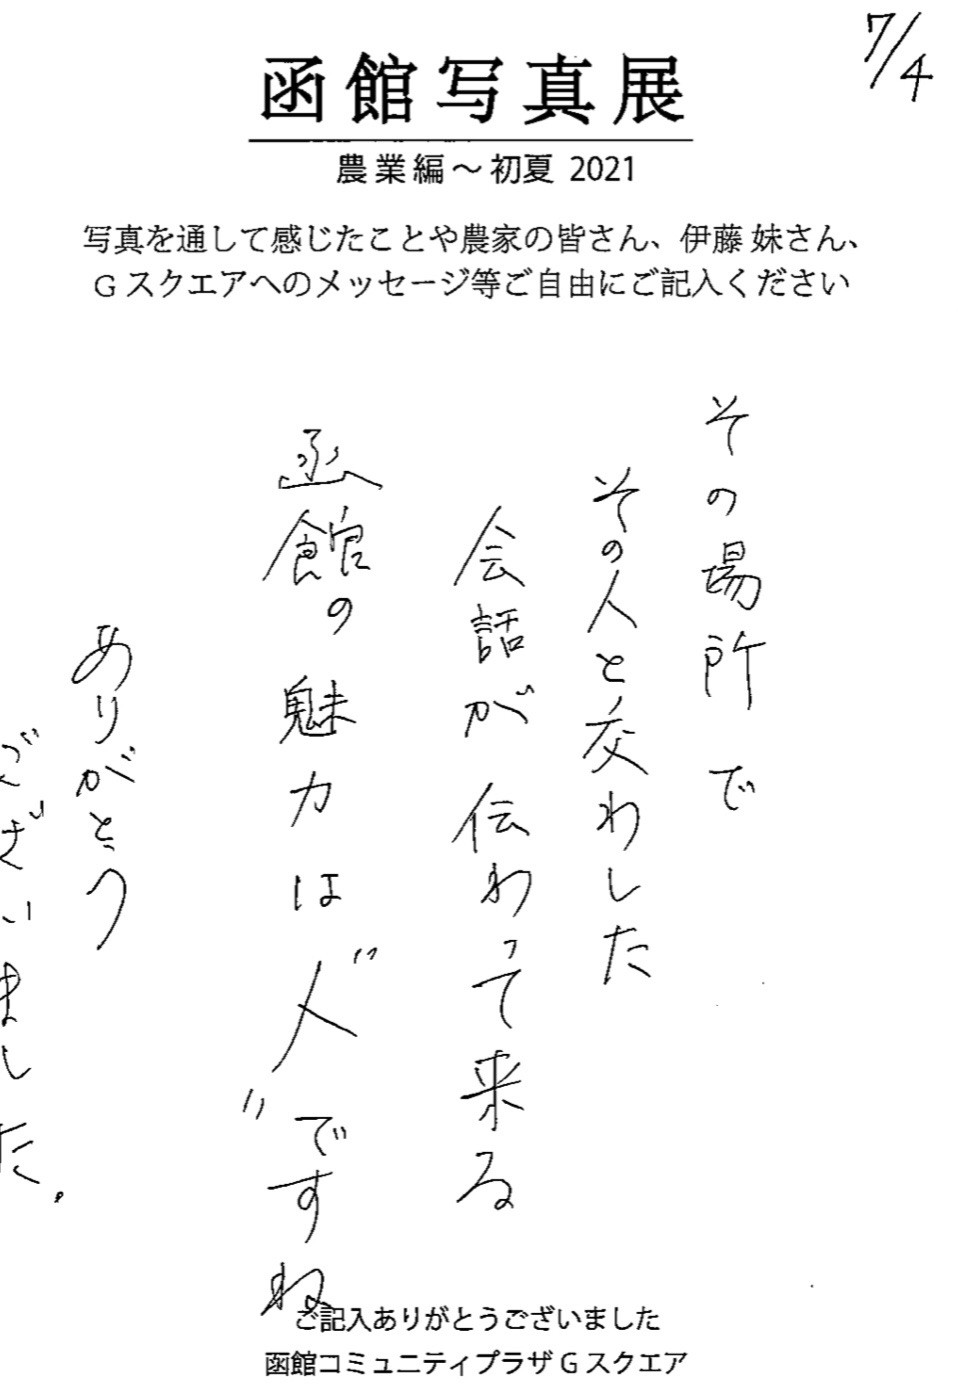 7/4
函館写真展
農業編～初夏 2021
写真を通して感じたことや農家の皆さん、伊藤 妹さん、
Gスクエアへのメッセージ等ご自由にご記入ください
その場所で
その人と交わした
会話が伝わって来る
函館の魅力は"人"ですね
ありがとう
ございました。
ご記入ありがとうございました
函館コミュニティプラザ G スクエア